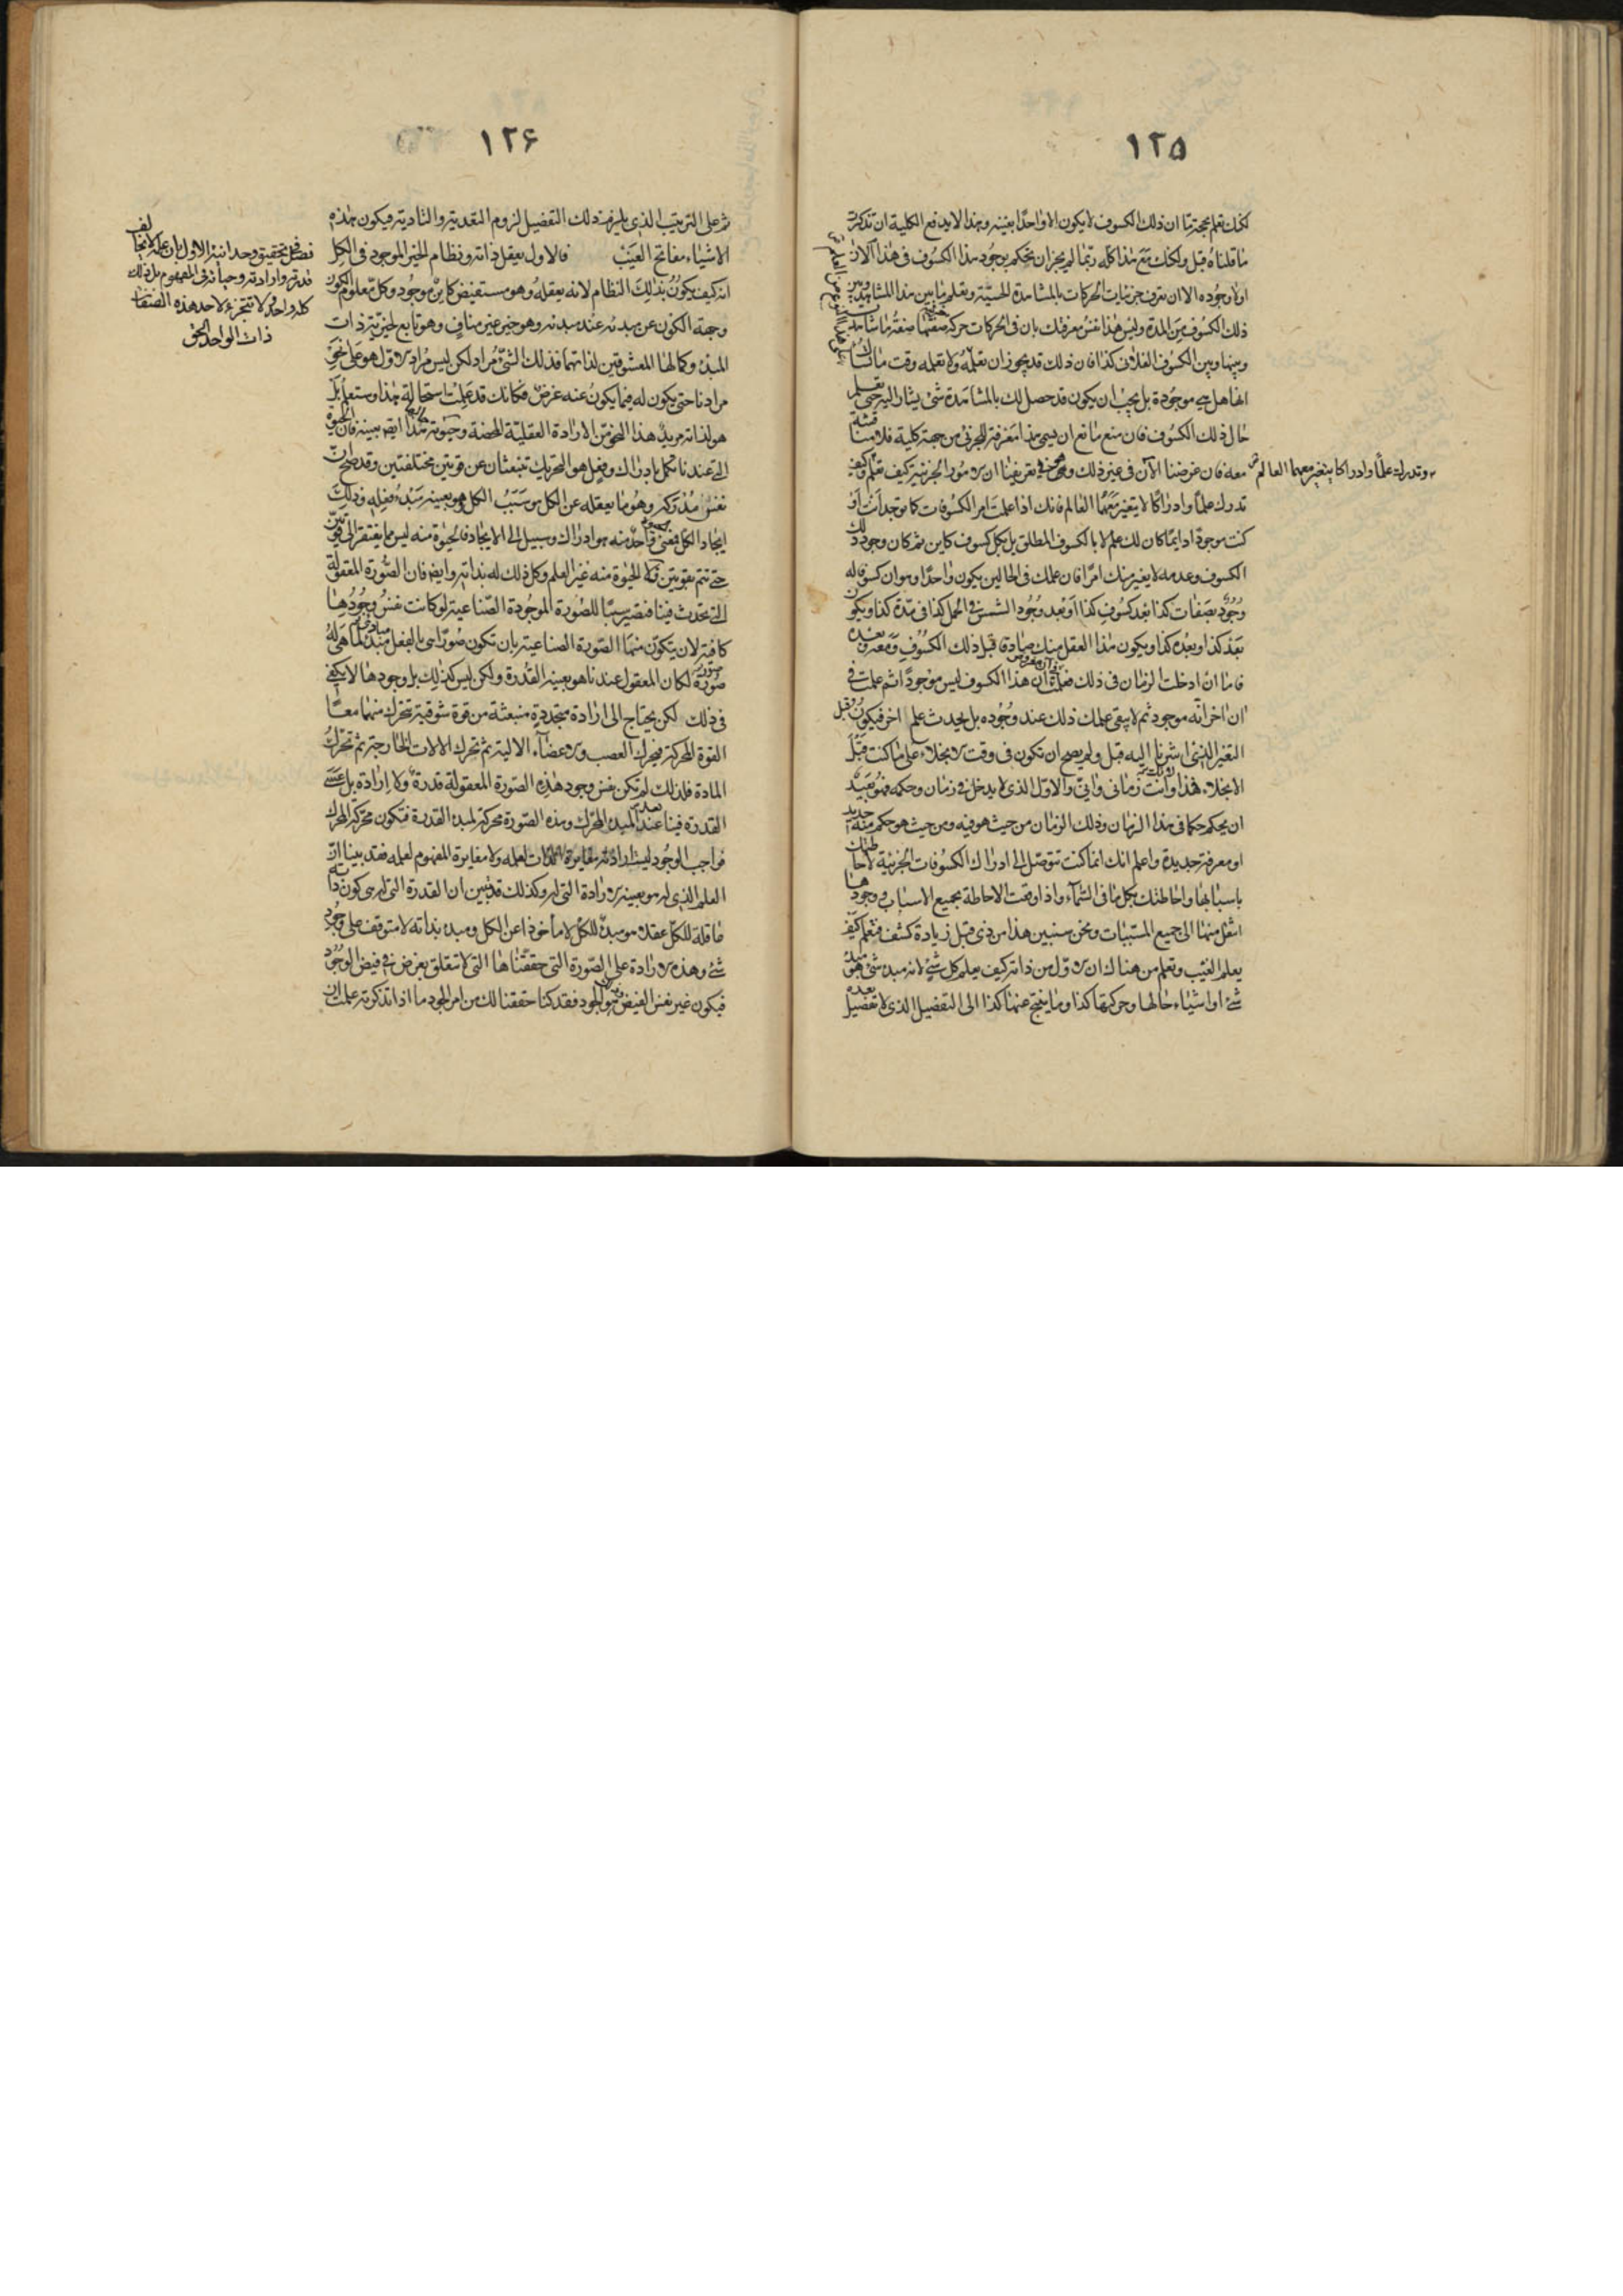 ١٢٥
لكنك تعلم بحجة ما ان ذلك الكسوف لا يكون الا واحدا بعينه وهذا لا يدفع الكلية ان تذكرت
ما قلناه قبل ولكنك مع هذا كله ربما لم يجز ان تحكم بوجود هذا الكسوف فى هذا الآن
او لا وجوده الا ان تعرف جزئيات الحركات بالمشاهدة الحسية وتعلم ما بين هذا المشاهد وبين
ذلك الكسوف من المدة وليس هذا نفس معرفتك بان فى الحركات حركة صفتها صفة ما شاهدت
وبينها وبين الكسوف الفلانى كذا فان ذلك قد يجوز ان تعلمه ولا تعلمه وقت ما
انها هل هى موجودة بل يجب ان يكون قد حصل لك بالمشاهدة شئ يشار اليه حتى تعلم
حال ذلك الكسوف فان منع مانع ان يسمى هذا معرفة للجزئى من جهة كلية فلا مناقشة
معه فان غرضنا الآن فى غير ذلك وهو فى تعريفنا ان الامور الجزئية كيف تعلم وكيف
وتدرك علما وادراكا يتغير معهما العالم
تدرك علما وادراكا لا يتغير معهما العالم فانك اذا علمت امر الكسوفات كما توجد انت او
كنت موجودا دايما كان لك علم لا بالكسوف المطلق بل بكل كسوف كاين ثم كان وجود ذلك
الكسوف وعدمه لا يغير منك امرا فان علمك فى الحالين يكون واحدا وهو ان كسوفا له
وجود بصفات كذا بعد كسوف كذا او بعد وجود الشمس فى الحمل كذا فى مدة كذا ويكون
بعد كذا وبعده كذا ويكون هذا العقل منك صادقا قبل ذلك الكسوف ومعه وبعده
فاما ان ادخلت الزمان فى ذلك فعلمت فى آن مفروض ان هذا الكسوف ليس موجودا ثم علمت فى
ان اخر انه موجود ثم لا يبقى علمك ذلك عند وجوده بل يحدث علم اخر فيكون قبل
التغير الذى اشرنا اليه قبل ولم يصح ان تكون فى وقت الانجلاء على ما كنت قبل
الانجلاء فهذا وانت زمانى وآنى والاول الذى لا يدخل فى زمان وحكمه فهو بعيد
ان يحكم حكما فى هذا الزمان وذلك الزمان من حيث هو فيه ومن حيث هو حكم منه جديد
او معرفة جديدة واعلم انك انما كنت تتوصل الى ادراك الكسوفات الجزئية لاحاطتك
باسبابها واحاطتك بكل ما فى السماء واذا وقعت الاحاطة بجميع الاسباب ووجودها
انتقل منها الى جميع المسببات ونحن سنبين هذا من ذى قبل زيادة كشف فتعلم كيف
يعلم الغيب وتعلم من هناك ان الاول من ذاته كيف يعلم كل شئ لانه مبدء شئ هو مبدء
شئ او اشياء حالها وحركتها كذا وما ينتج عنها كذا الى التفصيل الذى لا تفصيل بعده
١٢۶
ثم على الترتيب الذى يلزم ذلك التفصيل لزوم التعدية والتادية فيكون هذه
الاشياء مفاتح الغيب فالاول يعقل ذاته ونظام الخير الموجود فى الكل
انه كيف يكون بذلك النظام لانه يعقله وهو مستفيض كاين موجود وكل معلوم الكون
وجهة الكون عن مبدئه عند مبدئه وهو خير غير مناف وهو تابع لخيرية ذات
المبدء وكمالها المعشوقين لذاتهما فذلك الشئ مراد لكن ليس مراد الاول هو على نحو
مرادنا حتى يكون له فيما يكون عنه غرض فكانك قد علمت استحالة هذا وستعلم بل
هو لذاته مريد هذا النحو من الارادة العقلية المحضة وحيوته هذا ايضا بعينه فان الحيوة
التى عندنا تكمل بادراك وفعل هو التحريك تنبعثان عن قوتين مختلفتين وقد صح ان
نفس مدركه وهو ما يعقله عن الكل هو سبب الكل وهو بعينه مبدء فعله وذلك
ايجاد الكل فمعنى واحد منه هو ادراك وسبيل الى الايجاد فالحيوة منه ليس مما يفتقر الى قوتين
حتى تتم بقوتين فلا الحيوة منه غير العلم وكل ذلك له بذاته وايضا فان الصورة المعقولة
التى تحدث فينا فتصير سببا للصورة الموجودة الصناعية لو كانت نفس وجودها
كافية لان يتكون منها الصورة الصناعية بان تكون صورا هى بالفعل مبادى لما هى له
صورة لكان المعقول عندنا هو بعينه القدرة ولكن ليس كذلك بل وجودها لا يكفى
فى ذلك لكن يحتاج الى ارادة متجددة منبعثة من قوة شوقية تتحرك منهما معا
القوة المحركة فتحرك العصب والاعضاء الالية ثم تحرك الالات الخارجة ثم تحرك
المادة فلذلك لم تكن نفس وجود هذه الصورة المعقولة قدرة ولا ارادة بل عسى
القدرة فينا عند المبدء المحرك وهذه الصورة محركة لمبدء القدرة فتكون محركة المحرك
فواجب الوجود ليست ارادته مغايرة الذات لعلمه ولا مغايرة المفهوم لعلمه فقد بينا ان
العلم الذى له هو بعينه الارادة التى له وكذلك قد تبين ان القدرة التى له هى كون ذاته
عاقلة للكل عقلا هو مبدء للكل لا ماخوذا عن الكل ومبدء بذاته لا متوقف على وجود
شئ وهذه الارادة على الصورة التى حققناها التى لا تتعلق بغرض فى فيض الوجود
فيكون غير نفس الفيض وهو الجود فقد كنا حققنا لك من امر الجود ما اذا تذكرته علمت ان
فصل فى تحقيق وحدانية الاول بان علمه لا يخالف
قدرته وارادته وحياته فى المفهوم بل ذلك
كله واحد ولا تتجزء لاحد هذه الصفات
ذات الواحد الحق